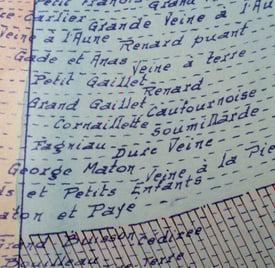 Petit Francis Grand
Cartier Grande Veine à l'Au
Veine à l'Aune Renard puant
Gade et Anas Veine à terre
Petit Gaillet Renard
Grand Gaillet Cautournoise
Cornaillette soumillarde
Fagniau Dure Veine
George Maton Veine à la Pie
ls et Petits Enfants
aton et Paye
Grand Buisson Cédixée
Bouilleau Terre